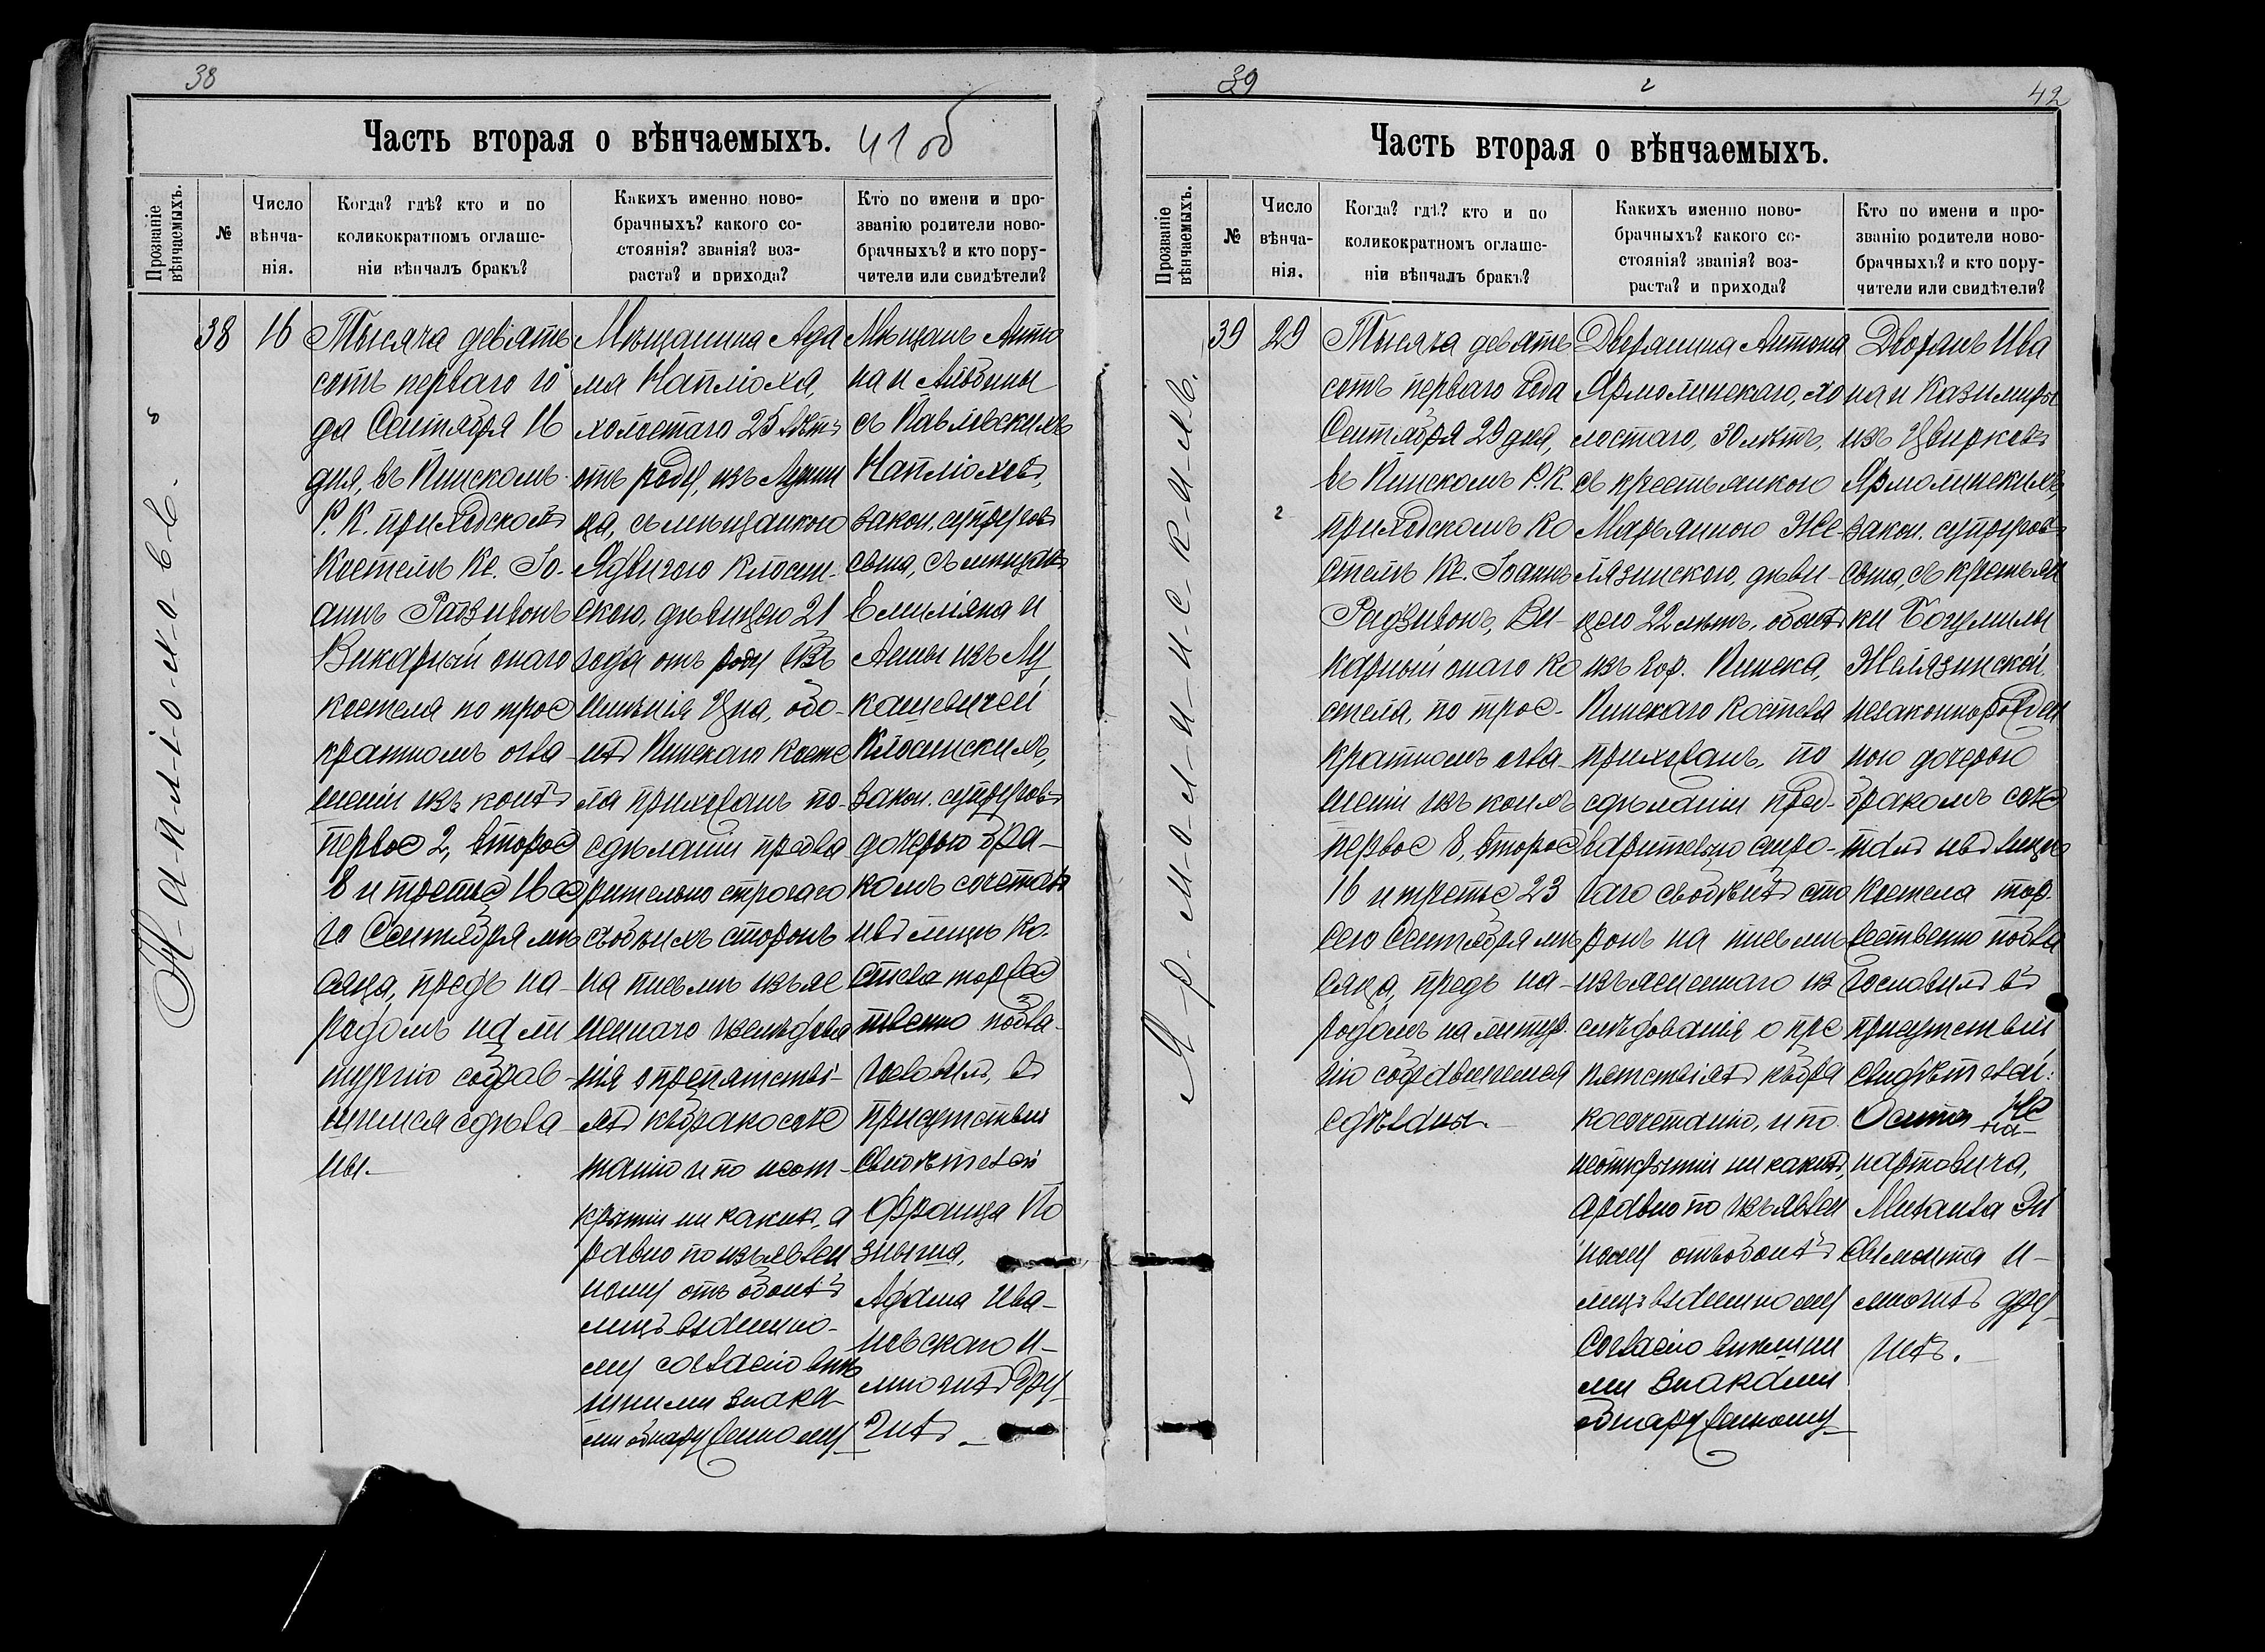 38
Часть вторая о вѣнчаемыхъ. 41 об
Прозваніе вѣнчаемыхъ.
№
Число вѣнча-
нія.
Когда? гдѣ? кто и по
коликократномъ оглаше-
ніи вѣнчалъ бракъ?
Каихъ именно ново-
брачныхъ? какого со-
стоянія? званія? воз-
раста? и прихода?
Кто по имени и про-
званію родители ново-
брачныхъ? и кто пору-
чители или свидѣтели?
Н-а-п-л-і-о-х-о-в-ъ.
38
16
Тысяча девять
сотъ перваго го
да Сентября 16
дня, въ Пинскомъ
Р. К. приходскомъ
Костелѣ Кс. Іо-
аннъ Радзивонъ
Викарный онаго
костела по трое
кратномъ огла-
шеніи изъ коихъ
первое 2, второе
8 и третье 16 се
го Сентября мѣ
сяца, предъ на-
родомъ на ли
тургію собрав-
шимся сдѣла-
ны.
Мѣщанина Ада
ма Наплюха,
холостаго 25 лѣтъ
отъ роду, изъ Лунин
ца, съ мѣщанкою
Ядвигою Клосин-
скою, дѣвицею 21
года отъ роду изъ
имѣнія Цна, обо-
ихъ Пинскаго косте
ла прихожанъ по-
сдѣланіи предва
рительно строгаго
съ обѣихъ сторонъ
на письмѣ изъяс
неннаго изслѣдова
нія о препятстві-
яхъ къ бракосоче
танію и по неот-
крытіи никакихъ, а
равно по изъявлен
ному отъ обоихъ
лицъ взаимно-
му согласію внѣ
шними знака
ми обнаруженному
Мѣщанъ Анто
на и Альбины
съ Павловскихъ
Наплюховъ,
закон. супруговъ
сына, съ мѣщанъ
Емиліяна и
Анны изъ Лу
кашевичей
Клосинскихъ,
закон. супруговъ
дочерью бра-
комъ сочеталъ
и въ лицѣ Ко-
стела торже
ственно побла-
гословилъ, въ
присутствіи
Свидѣтелей
Франца По
зняка,
Адама Ива-
новскаго и
многихъ дру-
гихъ.
39
2
42
Часть вторая о вѣнчаемыхъ.
Прозваніе вѣнчаемыхъ.
№
Число вѣнча-
нія.
Когда? гдѣ? кто и по
коликократномъ оглаше-
ніи вѣнчалъ бракъ?
Какихъ именно ново-
брачныхъ? какого со-
стоянія? званія? воз-
раста? и прихода?
Кто по имени и про-
званію родители ново-
брачныхъ? и кто пору-
чители или свидѣтели?
Я-р-м-о-л-и-н-с-к-и-х-ъ.
39
29
2
Тысяча девять
сотъ перваго года
Сентября 29 дня,
въ Пинскомъ Р. К.
приходскомъ Ко
стелѣ Кс. Іоаннъ
Радзивонъ, Ви-
карный онаго Ко
стела, по трое-
кратномъ огла-
шеніи изъ коихъ
первое 8, второе
16 и третье 23
сего Сентября мѣ
сяца, предъ на-
родомъ на литур-
гію собравшемся
сдѣланы.
Дворянина Антона
Ярмолинскаго, хо
лостаго, 30 лѣтъ,
съ крестьянкою
Марьянною Же-
лязинскою, дѣви-
цею 22 лѣтъ, обоихъ
изъ гор. Пинска,
Пинскаго Костела
прихожанъ, по
сдѣланіи пред-
варительно стро-
гаго съ обѣихъ сто
ронъ на письмѣ
изъясненнаго из
слѣдованія о пре
пятствіяхъ къ бра
косочетанію, и по
неоткрытіи никакихъ,
а равно по изъявлен
ному отъ обоихъ
лицъ взаимному
согласію внѣшни
ми знаками
обнаруженному
Дворянъ Ива
на и Казимиры
изъ Цвирковъ
Ярмолинскихъ,
закон. супруговъ
сына, съ крестьян
ки Богумилы
Желязинской
незаконнорожден
ною дочерью
бракомъ соче
талъ и въ лицѣ
Костела тор-
жественно побла
гословилъ въ
присутствіи
Свидѣтелей:
Осипа
нартовича,
Михаила
и
многихъ дру-
гихъ.